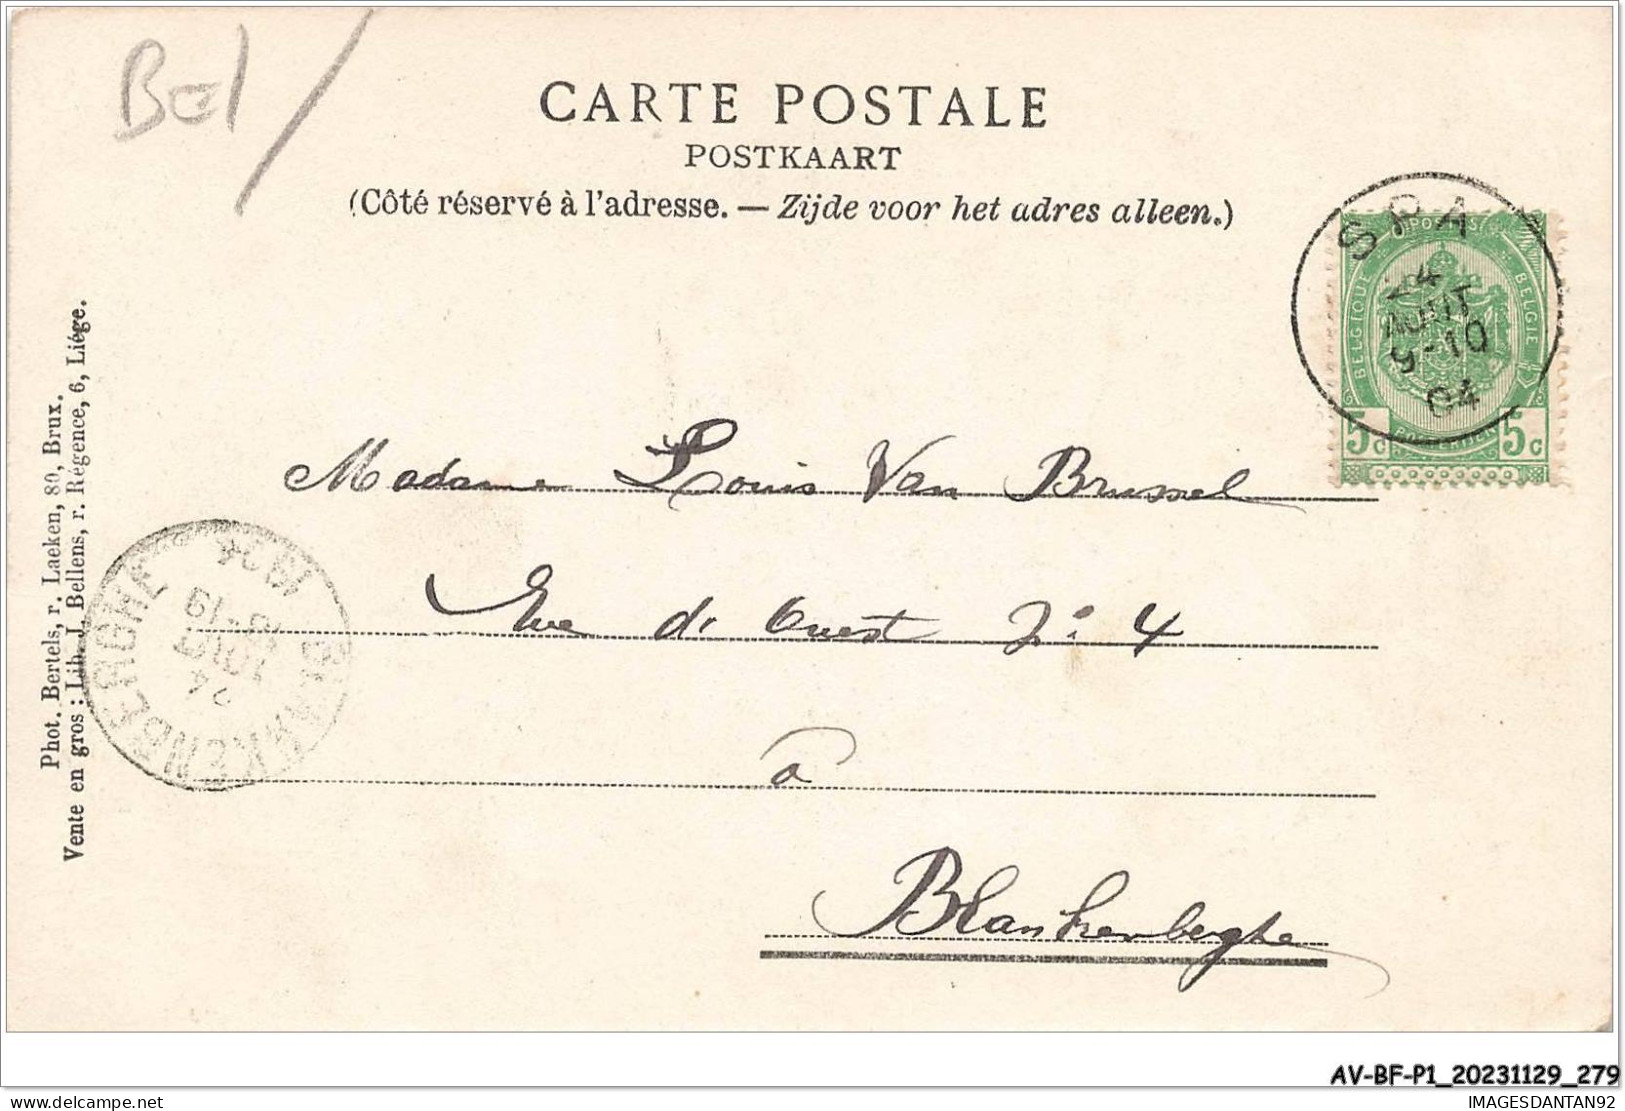 Bel /
CARTE POSTALE
POSTKAART
(Côté réservé à l'adresse. — Zijde voor het adres alleen.)
SPA
24
AOUT
9-10
04
POSTES
BELGIQUE
BELGIE
5c
POSTERIJEN
5c
Madame Louis Van Brussel
Rue de Ouest Nº 4
à
Blankenberghe
BLANKENBERGHE
24
AOUT
18-19
1904
Phot. Bertels, r. Laeken, 80, Brux.
Vente en gros : Lib. J. Bellens, r. Régence, 6, Liége.
AV-BF-P1_20231129_279
delcampe.net
IMAGESDANTAN92